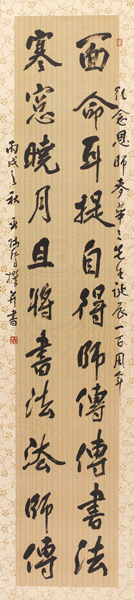 紀念恩師麥華三先生誕辰一百周年
面命耳提自得師傳傳書法
寒窓曉月且將書法法師傳
丙戌之秋 撰并書